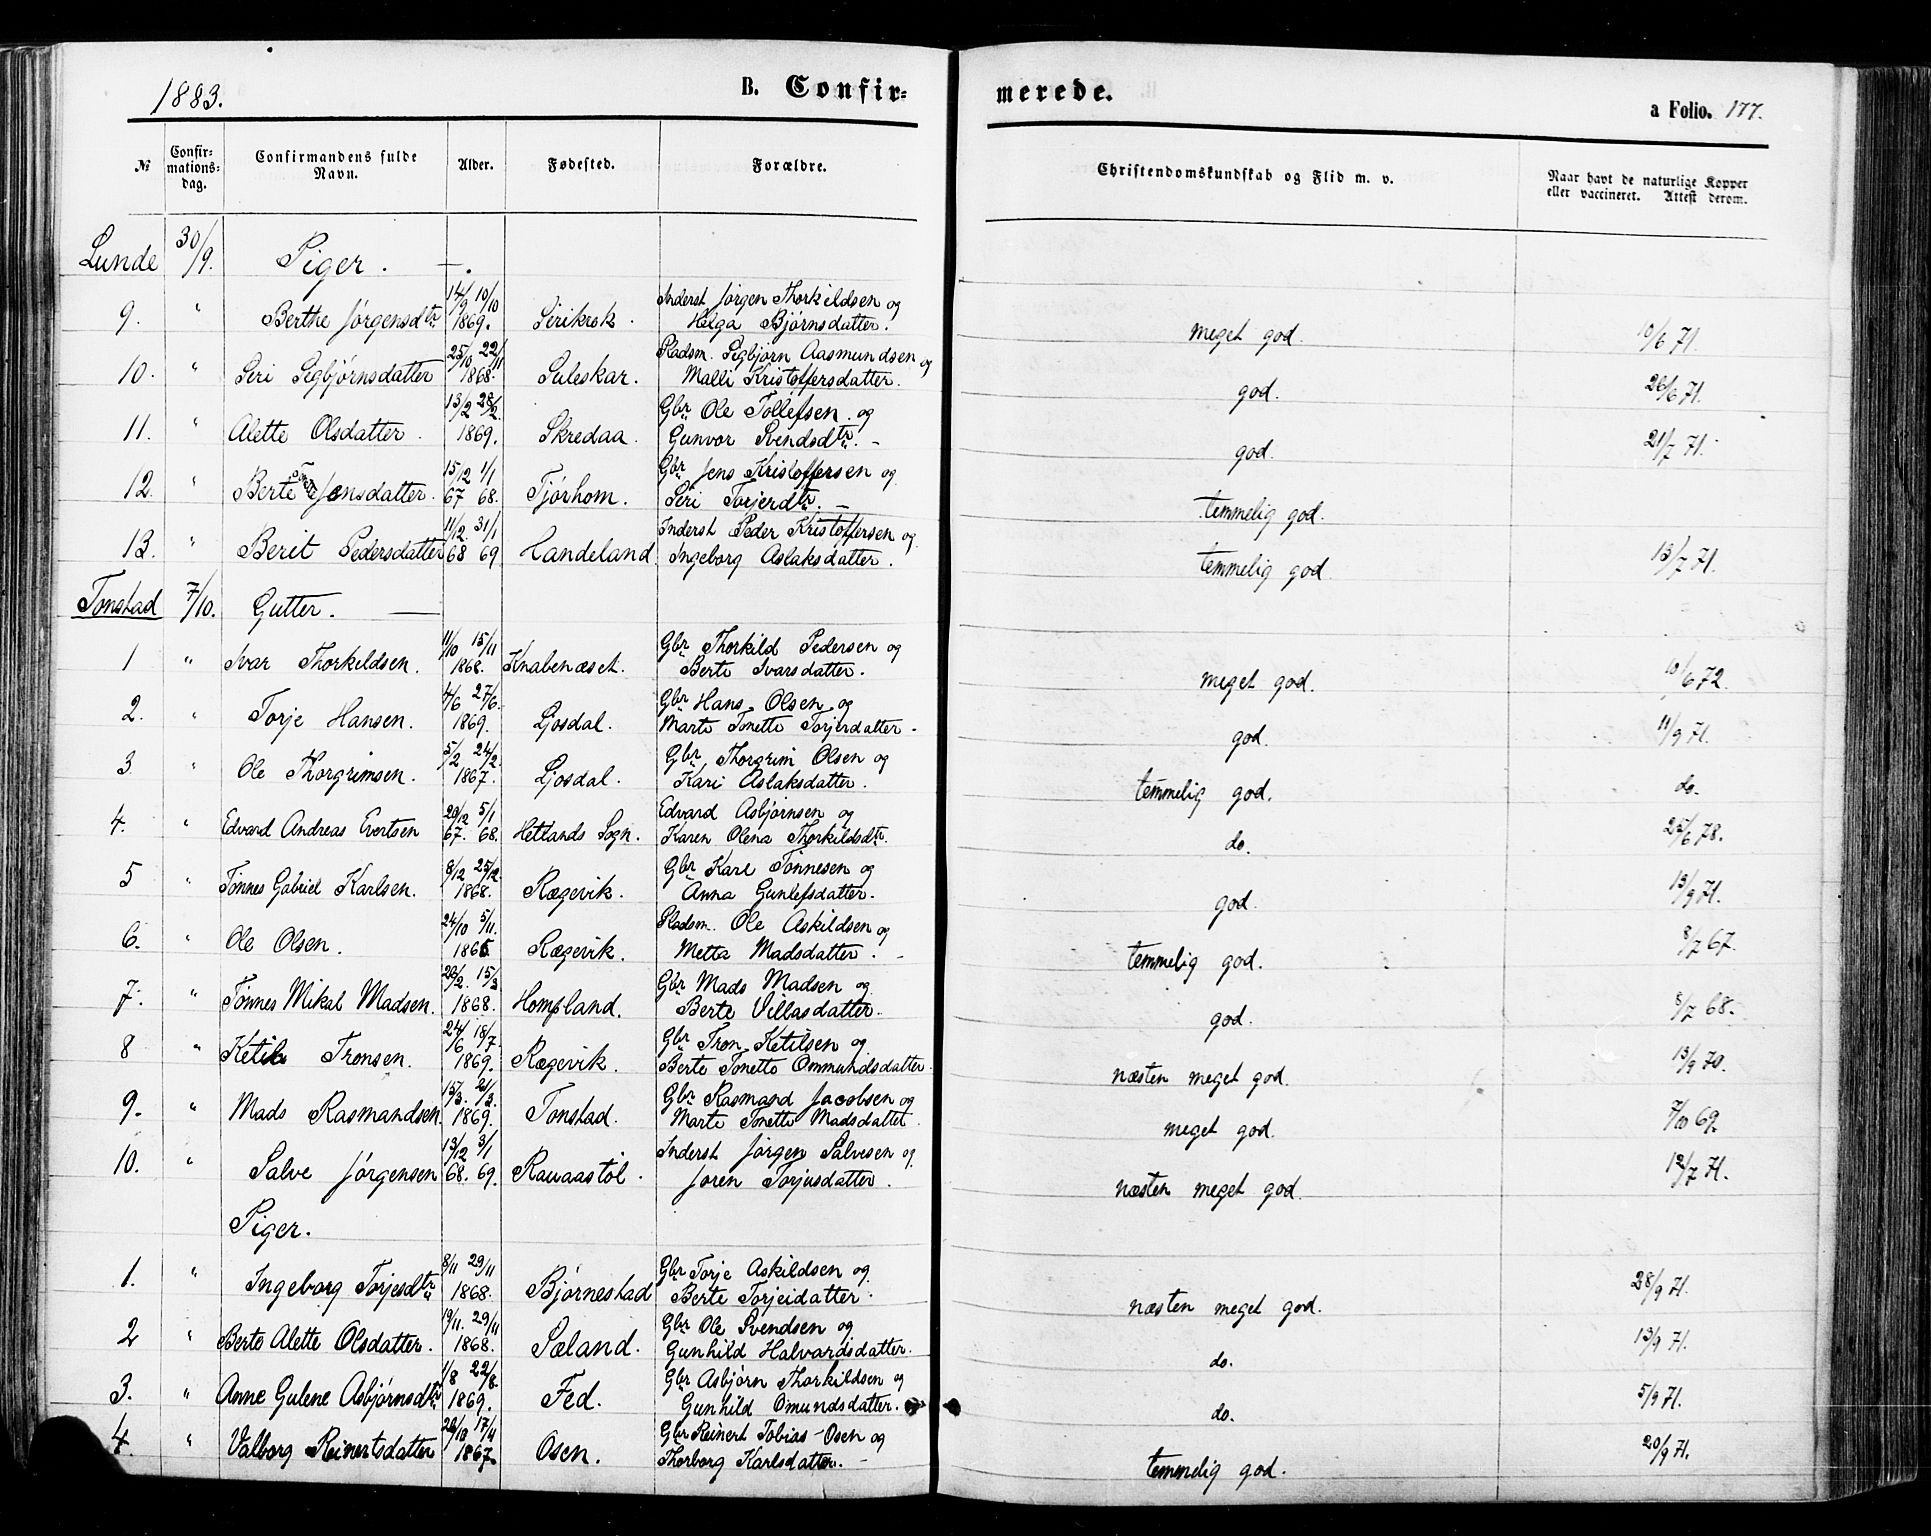 1883.
B. Confir-
merede.
a Folio. 177.
№
Confir-
mations-
dag.
Confirmandens fulde
Navn.
Alder.
Fødested.
Forældre.
Christendomskundskab og Flid m. v.
Naar havt de naturlige Kopper
eller vaccineret. Attest derom.
Lunde 30/9. Piger. —.
14/9 10/10 Inderst Jørgen Thorkildsen og
9. " Berthe Jørgensdtr 1869. Sirikrok. Helga Bjørnsdatter. meget god. 10/6 71.
25/10 22/11 Pladsm. Sigbjørn Aasmundsen og
10. " Siri Sigbjørnsdatter 1868. Suleskar. Malli Kristoffersdatter. god. 26/6 71.
13/2 28/2. Gbr Ole Tollefsen og
11. " Alette Olsdatter. 1869. Skredaa. Gunvor Svendsdtr. — god. 21/7 71.
15/12 1/1 Gbr Jens Kristoffersen og
12. " Berte Jensdatter. 67 68. Tjørhom. Siri Torjerdtr. — temmelig god.
11/12. 31/1 Inderst Peder Kristoffersen og
13. " Berit Pedersdatter 68 69 Handeland. Ingeborg Aslaksdatter. temmelig god. 13/7 71.
Tonstad 7/10. Gutter. —
11/10 15/11 Gbr Thorkild Pedersen og
1 " Ivar Thorkildsen. 1868. Knabenæset. Berte Ivarsdatter. meget god. 10/6 72.
4/6 27/6. Gbr Hans Olsen og
2. " Torje Hansen. 1869. Ljosdal. Marte Tonette Torjerdatter. god. 11/9 71.
5/2 24/2. Gbr Thorgrim Olsen og
3 " Ole Thorgrimsen. 1867. Ljosdal. Kari Aslaksdatter. temmelig god. do.
29/12 5/1 Edvard Asbjørnsen og
4. " Edvard Andreas Evertsen 67. 68. Hetlands Sogn. Karen Olena Thorkildsdtr. do. 25/6 78.
8/12 25/12. Gbr Karl Tønnesen og
5 " Tønnes Gabriel Karlsen. 1868. Rægevik. Anna Gunlefsdatter. god. 13/9 71.
24/10 5/11. Pladsm. Ole Askildsen og
6. " Ole Olsen. 1865. Rægevik. Metta Madsdatter. — temmelig god. 8/7 67.
28/2. 15/3 Gbr Mads Madsen og
7. " Tønnes Mikal Madsen. 1868. Hompland. Berte Villasdatter. god. 8/7 68.
24/6 18/7 Gbr Tron Ketilsen og
8 " Ketil Tronsen. 1869. Rægevik. Berte Tonette Ommundsdatter. næsten meget god. 13/9 70.
15/3. 21/3. Gbr Rasmand Jacobsen og
9. " Mads Rasmandsen. 1869. Tonstad. Marte Tonette Madsdatter. meget god. 7/10 69.
13/12 3/1 Inderst Jørgen Salvesen og
10. " Salve Jørgensen 68. 69. Rauaastøl. Joren Torjusdatter. næsten meget god. 12/7 71.
Piger.
8/11 29/11 Gbr Torje Askildsen og
1. " Ingeborg Torjesdtr 1868. Bjørnestad Berte Torjeidatter. næsten meget god. 28/9 71.
19/11. 29/11 Gbr Ole Svendsen og
2 " Berte Alette Olsdatter. 1868. Sæland. Gunhild Halvardsdatter. do. 13/9 71.
1/8 22/8. Gbr Asbjørn Thorkildsen og
3. " Anne Gulene Asbjørnsdtr 1869. Fed. Gunhild Omundsdatter. do. 5/9 71.
26/10 17/11 Gbr Reinert Tobias Osen og
4 " Valborg Reinertsdatter 1867. Osen. Thorborg Karlsdatter. — temmelig god. 20/9 71.